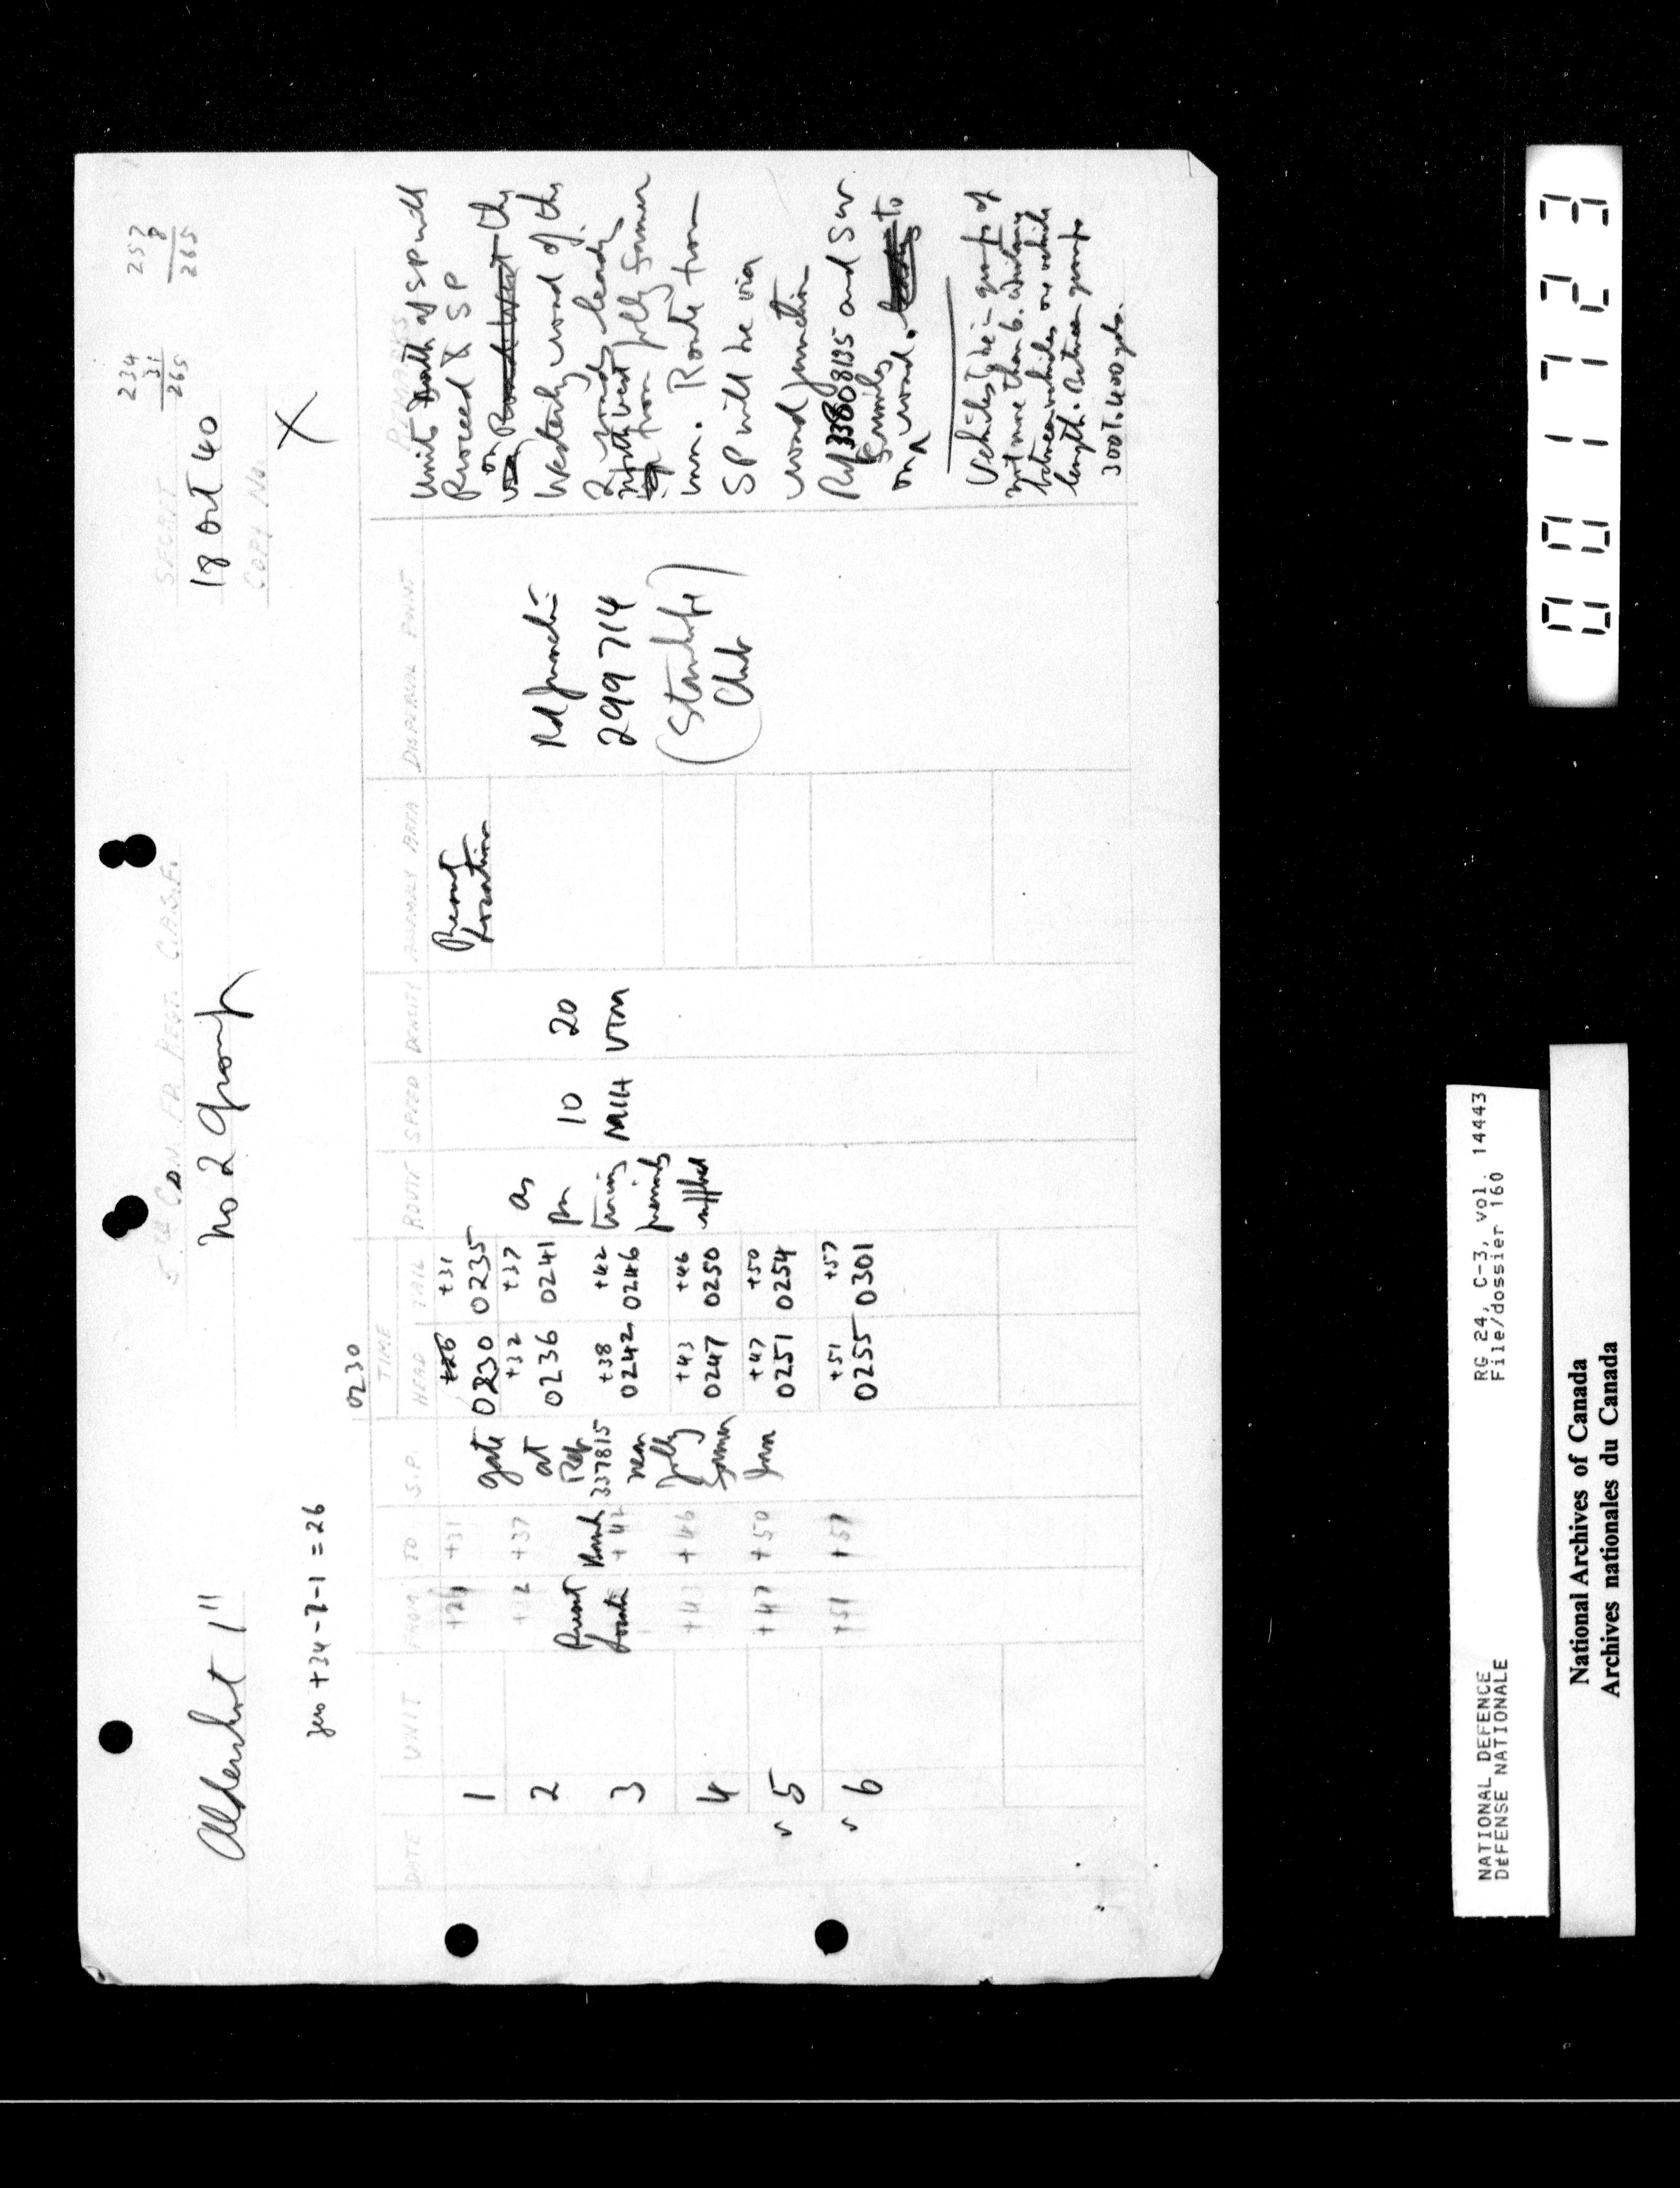 5TH CDN. FD. REGT. C.A.S.F.
234
31
265
257
8
265
SECRET
Aldershot 1"
No 2 Group
18 Oct 40
COPY No.
X
zero +34-7-1 = 26
0230
DATE UNIT FROM TO S.P. TIME ROUTE SPEED DENSITY ASSEMBLY AREA DISPERSAL POINT REMARKS
HEAD TAIL
1 +26 +31 +26 +31
0230 0235
2 +32 +37 +32 +37
0236 0241
3 +42 +38 +42
0242 0246
4 +43 +46 +43 +46
0247 0250
5 +47 +50 +47 +50
0251 0254
6 +51 +57 +51 +57
0255 0301
Present
gate
at
Ref.
337815
near
Jolly
Farmer
Inn
as
per
10
MIH
20
VTM
Present
Location
Rd Junction
299714
(Stanhope)
Club
Unit North of SP will
Proceed SP
on Road West the
Westerly road of the
2 roads leading
North West
from Jolly Farmer
Inn. Route from
SP will be via
road junction
Ref 33808135 and SW
on road. to
Vehicles to be in groups of
not more than 6.
between vehicles one vehicle
length. Between groups
300 T. 400 yds.
001723
NATIONAL DEFENCE RG 24, C-3, vol. 14443
DéFENSE NATIONALE File/dossier 160
National Archives of Canada
Archives nationales du Canada